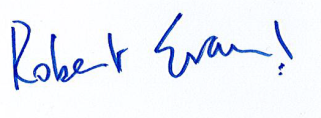 Robert Evans!